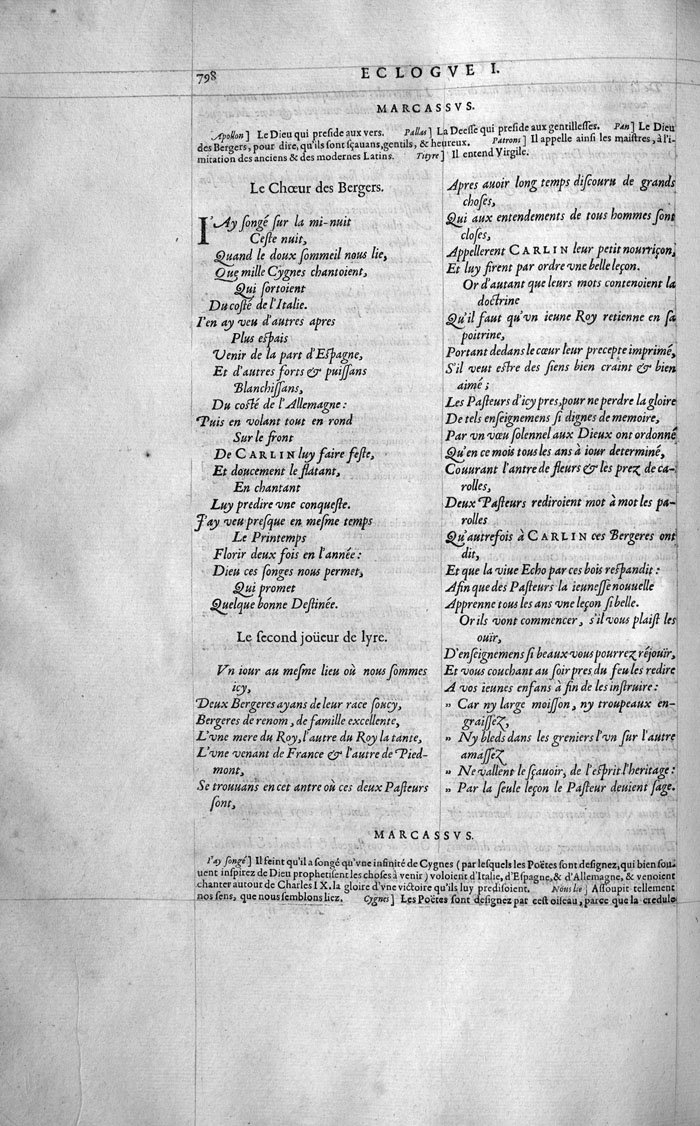 798
ECLOGVE I.
MARCASSVS.
Apollon] Le Dieu qui preside aux vers. Pallas] La Deesse qui preside aux gentillesses. Pan] Le Dieu
des Bergers, pour dire, qu'ils sont sçauans, gentils, & heureux. Patrons] Il appelle ainsi les maistres, à l'i-
mitation des anciens & des modernes Latins. Tityre] Il entend Virgile.
Le Chœur des Bergers.
I'Ay songé sur la mi-nuit
Ceste nuit,
Quand le doux sommeil nous lie,
Que mille Cygnes chantoient,
Qui sortoient
Du costé de l'Italie.
I'en ay veu d'autres apres
Plus espais
Venir de la part d'Espagne,
Et d'autres forts & puissans
Blanchissans,
Du costé de l'Allemagne:
Puis en volant tout en rond
Sur le front
De CARLIN luy faire feste,
Et doucement le flatant,
En chantant
Luy predire vne conqueste.
J'ay veu presque en mesme temps
Le Printemps
Florir deux fois en l'année:
Dieu ces songes nous permet,
Qui promet
Quelque bonne Destinée.
Le second joüeur de lyre.
Vn iour au mesme lieu où nous sommes
icy,
Deux Bergeres ayans de leur race soucy,
Bergeres de renom, de famille excellente,
L'vne mere du Roy, l'autre du Roy la tante,
L'vne venant de France & l'autre de Pied-
mont,
Se trouuans en cet antre où ces deux Pasteurs
sont,
Apres auoir long temps discouru de grands
choses,
Qui aux entendements de tous hommes sont
closes,
Appellerent CARLIN leur petit nourriçon,
Et luy firent par ordre vne belle leçon.
Or d'autant que leurs mots contenoient la
doctrine
Qu'il faut qu'vn ieune Roy retienne en sa
poitrine,
Portant dedans le cœur leur precepte imprimé,
S'il veut estre des siens bien craint & bien
aimé;
Les Pasteurs d'icy pres, pour ne perdre la gloire
De tels enseignemens si dignes de memoire,
Par vn vœu solennel aux Dieux ont ordonné
Qu'en ce mois tous les ans à iour determiné,
Couurant l'antre de fleurs & les prez de ca-
rolles,
Deux Pasteurs rediroient mot à mot les pa-
rolles
Qu'autrefois à CARLIN ces Bergeres ont
dit,
Et que la viue Echo par ces bois respandit:
Afin que des Pasteurs la ieunesse nouuelle
Apprenne tous les ans vne leçon si belle.
Or ils vont commencer, s'il vous plaist les
ouir,
D'enseignemens si beaux vous pourrez réjouir,
Et vous couchant au soir pres du feu les redire
A vos ieunes enfans à fin de les instruire:
" Car ny large moisson, ny troupeaux en-
graissez,
" Ny bleds dans les greniers l'vn sur l'autre
amassez
" Ne vallent le sçauoir, de l'esprit l'heritage:
" Par la seule leçon le Pasteur deuient sage.
MARCASSVS.
I'ay songé] Il feint qu'il a songé qu'vne infinité de Cygnes (par lesquels les Poëtes sont designez, qui bien sou-
uent inspirez de Dieu prophetisent les choses à venir) voloient d'Italie, d'Espagne, & d'Allemagne, & venoient
chanter autour de Charles IX. la gloire d'vne victoire qu'ils luy predisoient. Nous lie] Assoupit tellement
nos sens, que nous semblons liez. Cygnes] Les Poëtes sont designez par cest oiseau, parce que la credule